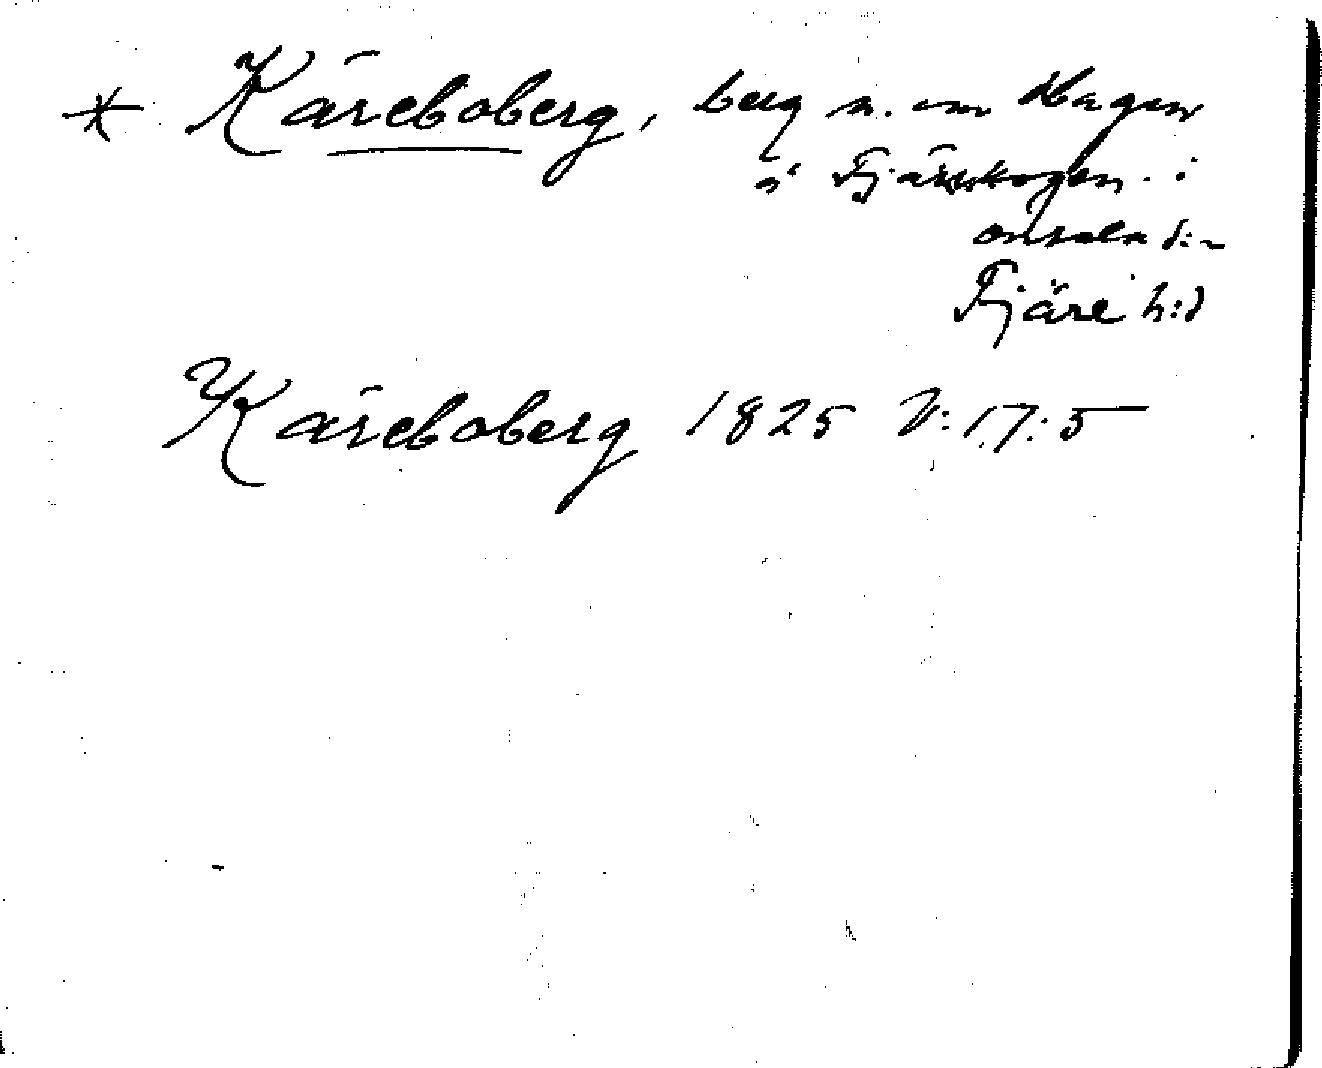 * Käreboberg, berg n. om Hagen
å Fjärskogen. i
Onsala s:n
Fjäre h:d
Käreboberg 1825 V:17:5